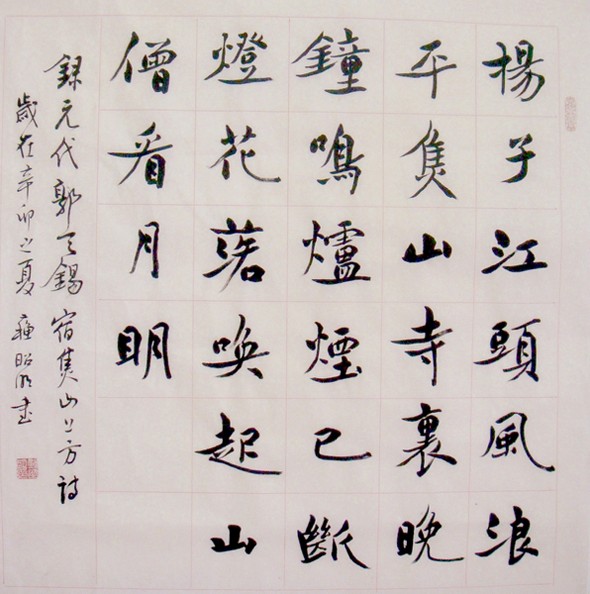 揚子江頭風浪
平焦山寺裏晚
鐘鳴爐煙已斷
燈花落喚起山
僧看月明
錄元代郭天錫宿焦山上方詩
歲在辛卯之夏 昭書